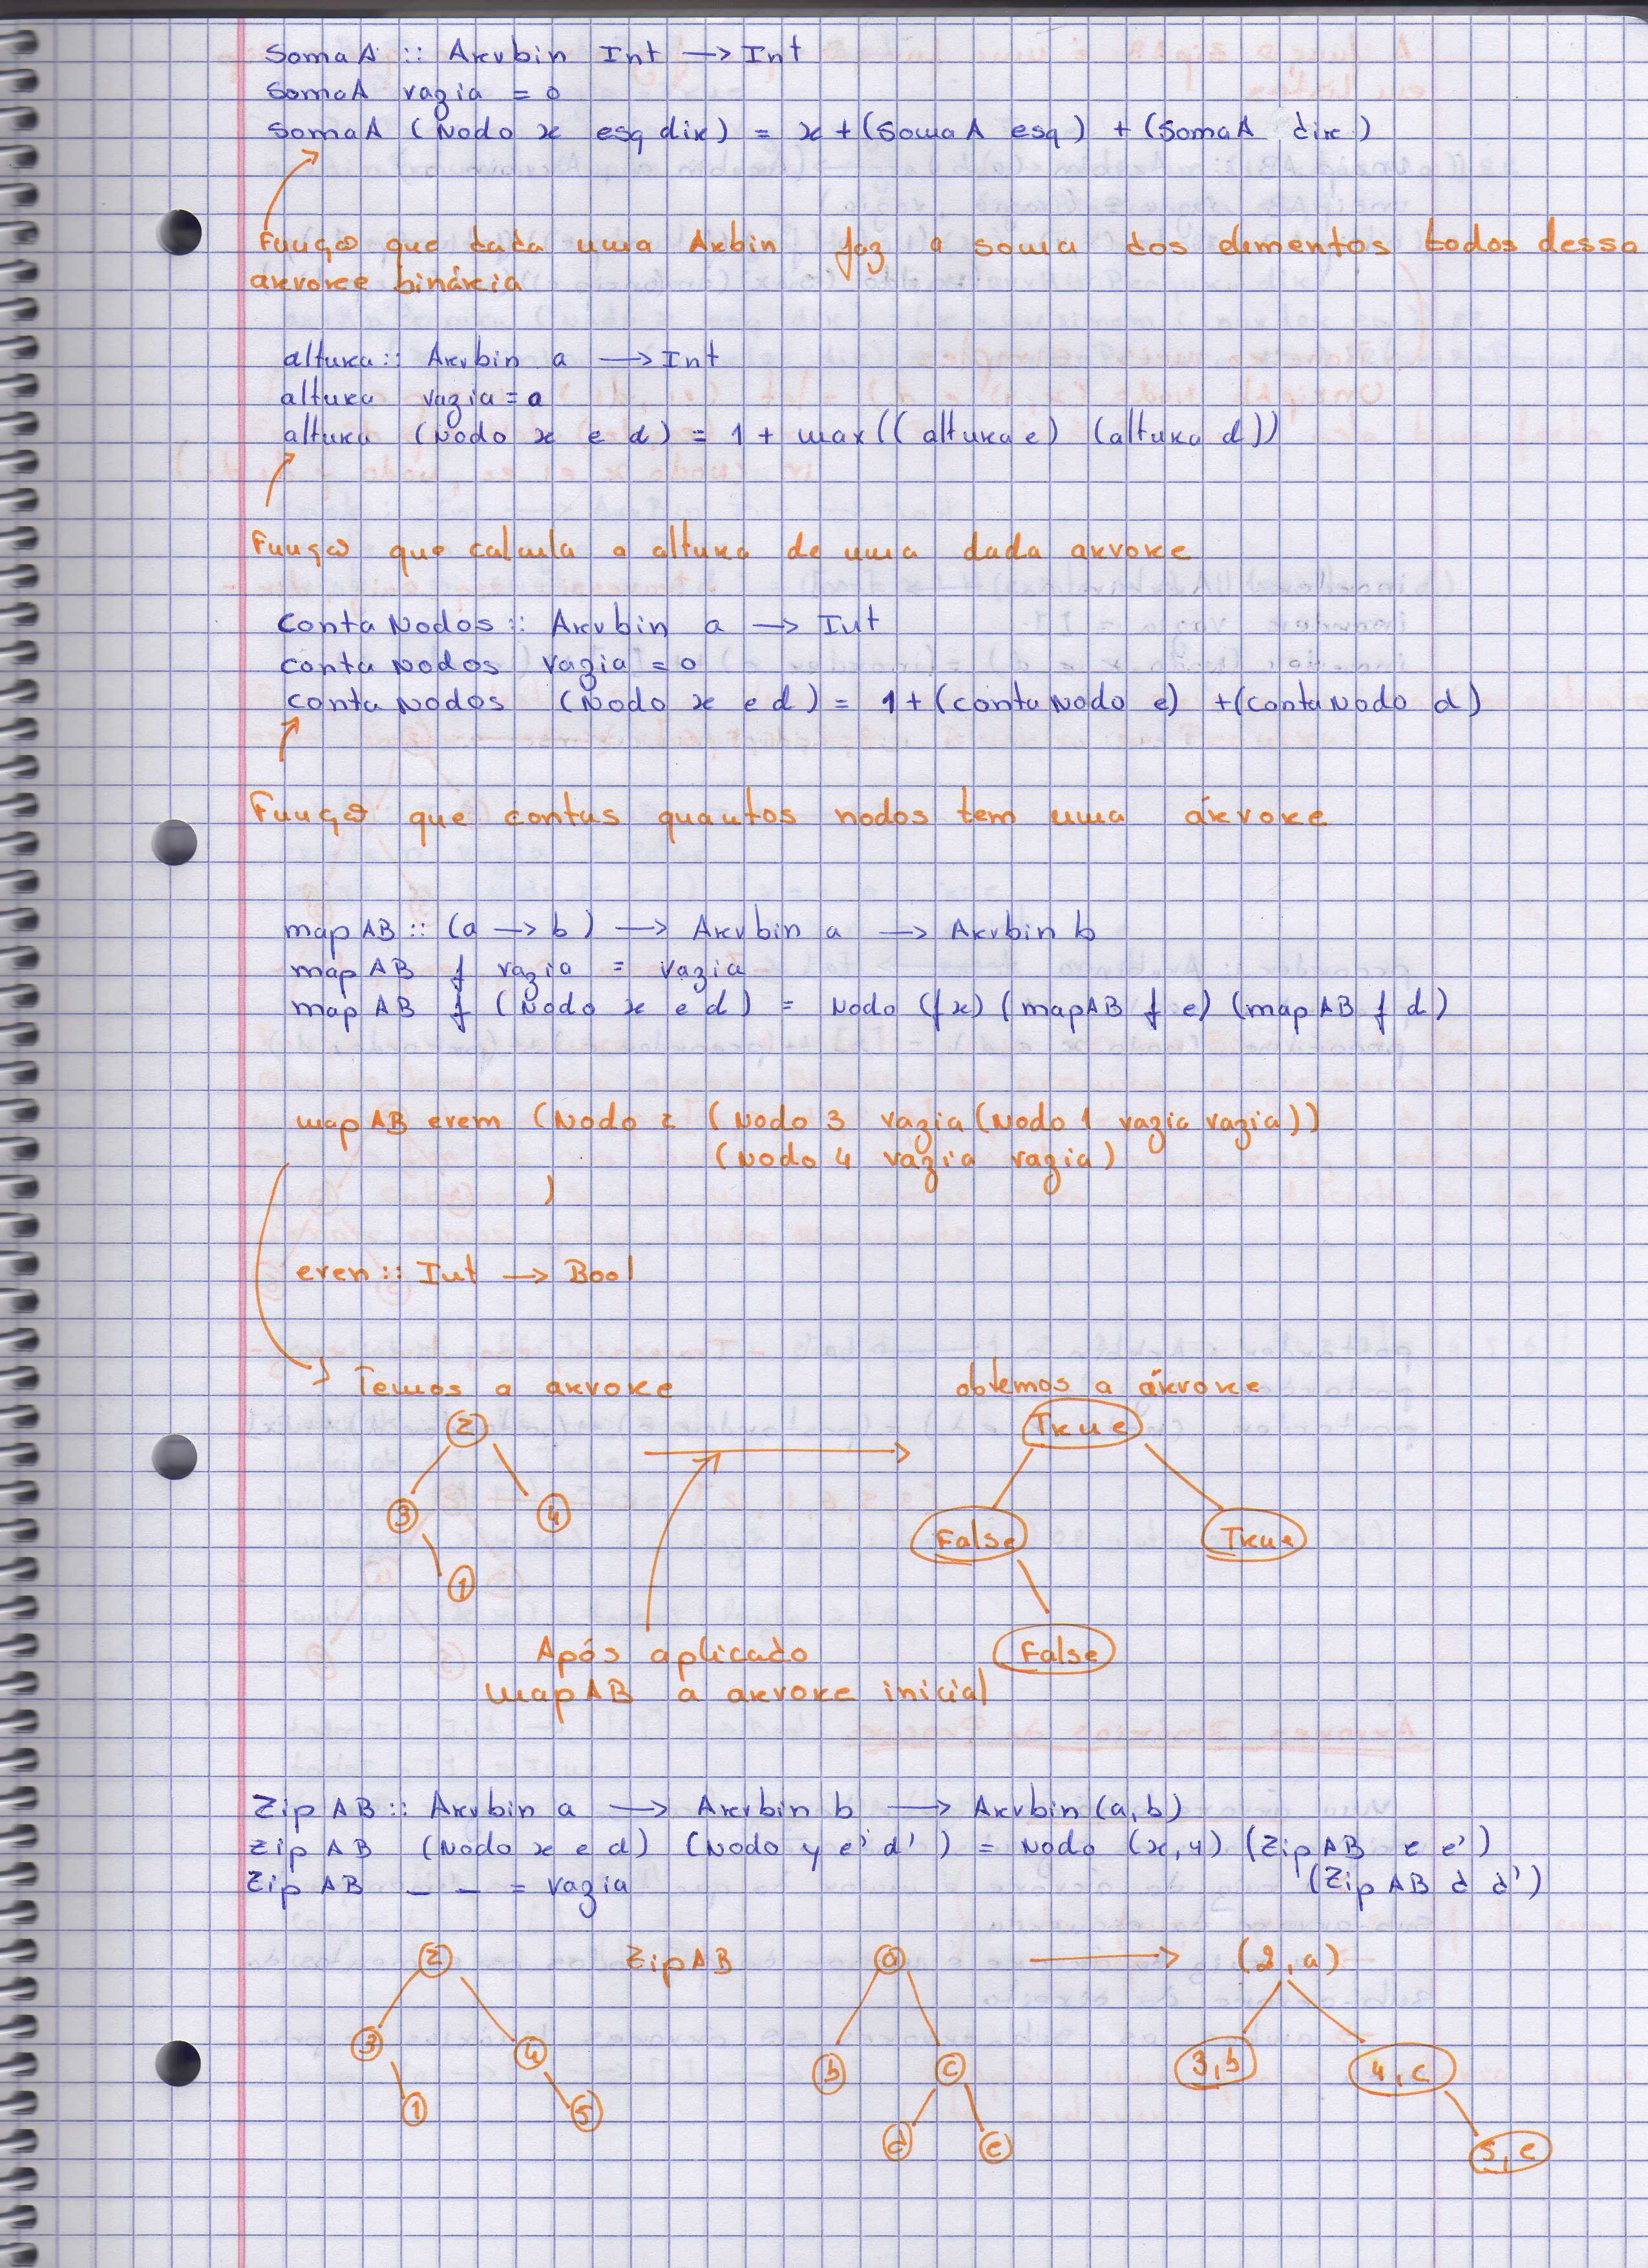 SomaA :: Arvbin Int → Int
SomaA vazia = 0
SomaA (Nodo x esq dir) = x + (SomaA esq) + (SomaA dir)
Função que dada uma Arbin faz a soma dos elementos todos dessa
arvore binária
altura :: Arvbin a → Int
altura vazia = 0
altura (Nodo x e d) = 1 + max((altura e) (altura d))
Função que calcula a altura de uma dada arvore
Conta Nodos :: Arvbin a → Int
conta Nodos vazia = 0
conta Nodos (Nodo x e d) = 1 + (conta Nodo e) + (conta Nodo d)
Função que contas quantos nodos tem uma árvore
map AB :: (a → b) → Arvbin a → Arvbin b
map AB f vazia = vazia
map AB f (Nodo x e d) = Nodo (f x) (mapAB f e) (map AB f d)
map AB evem (Nodo 2 (Nodo 3 vazia (Nodo 1 vazia vazia))
(Nodo 4 vazia vazia)
)
even :: Int → Bool
Temos a arvore obtemos a árvore
2 True
3 4 False True
1 False
Após aplicado
mapAB a arvore inicial
Zip AB :: Arvbin a → Arvbin b → Arvbin (a,b)
Zip AB (Nodo x e d) (Nodo y e' d') = Nodo (x,y) (Zip AB e e')
Zip AB _ _ = vazia (Zip AB d d')
2 ZipAB a → (2,a)
3 4 b c 3,b 4,c
1 5 d e 5,e